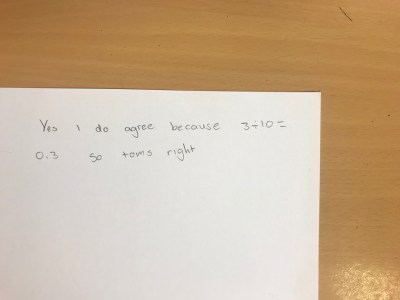 Yes I do agree because 3÷10=
0.3 so toms right